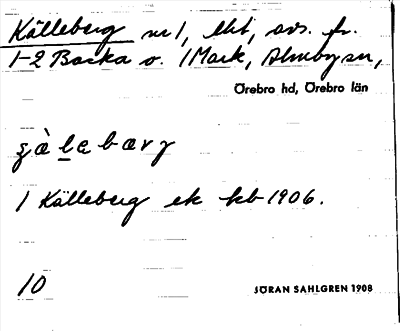 Källeberg nr 1, lht, avs. fr.
1-2 Backa o. 1 Mark, Almby sn,
Örebro hd, Örebro län
1 Källeberg ek kb 1906.
10
JÖRAN SAHLGREN 1908